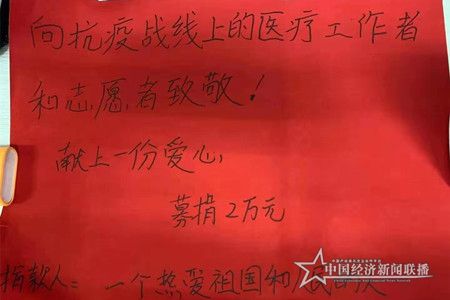 向抗疫战线上的医疗工作者
和志愿者致敬！
献上一份爱心，
募捐2万元
捐款人：一个热爱祖国和人民的人
中国经济新闻联播